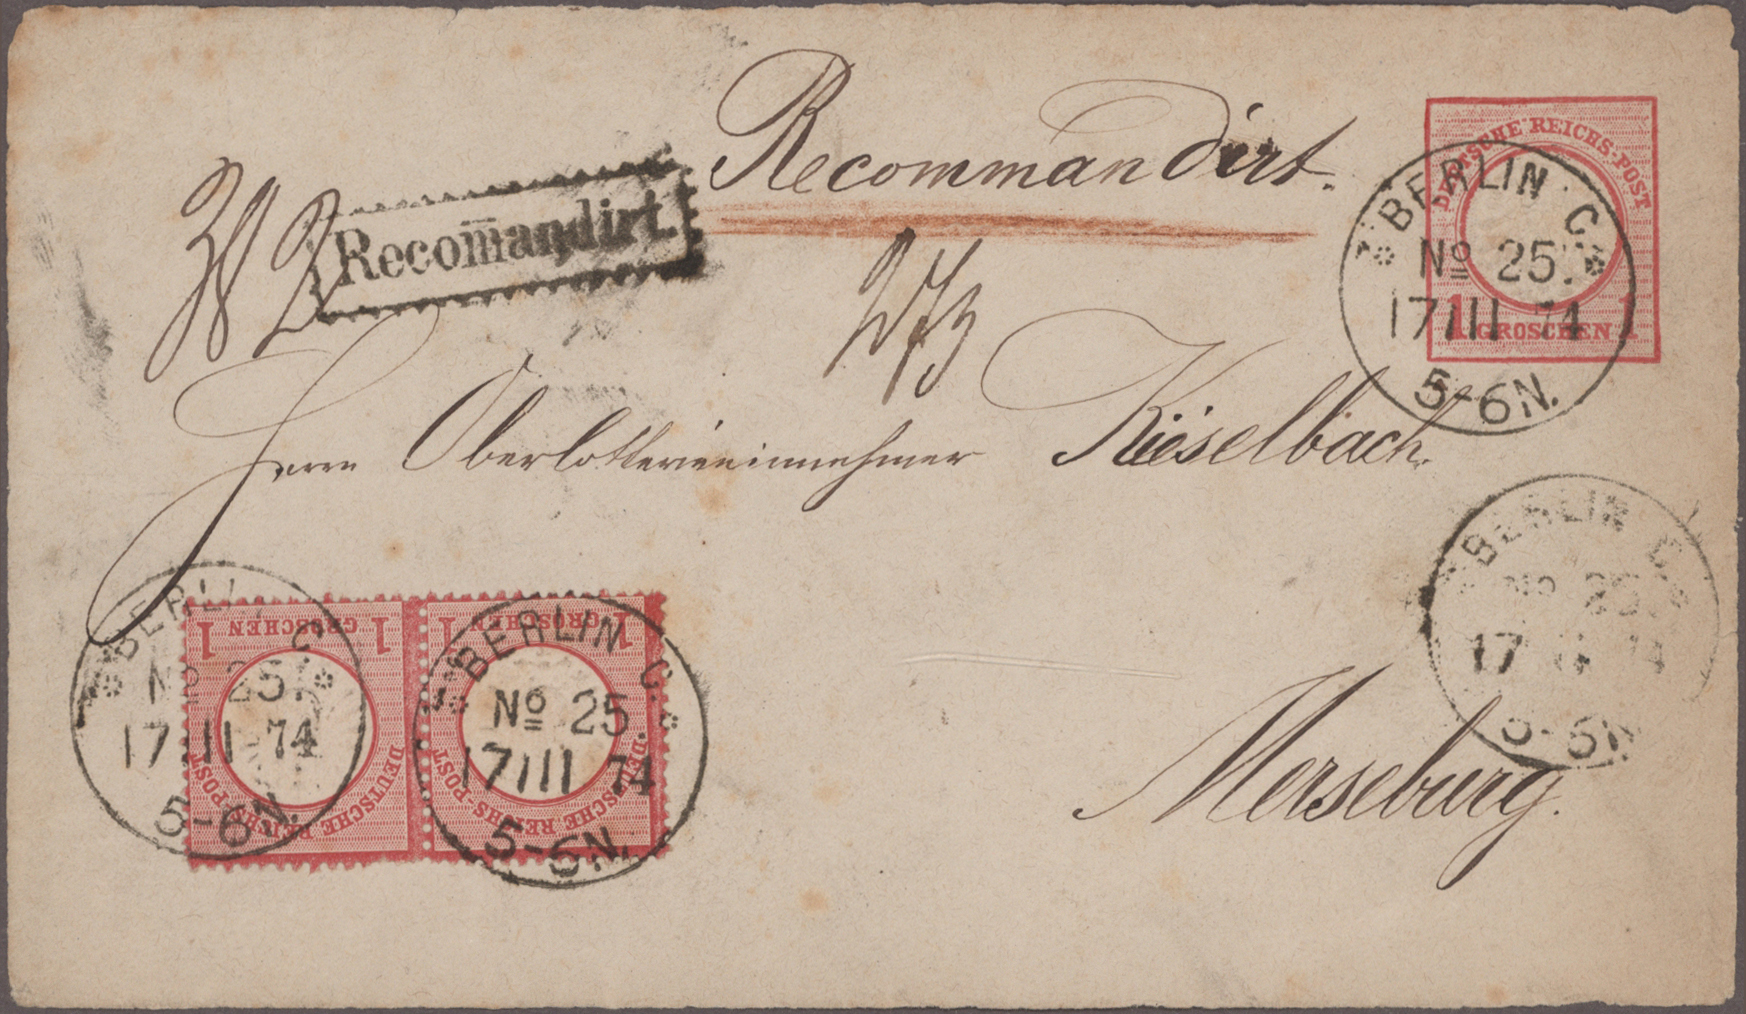 Recommandirt.
Recom̄andirt.
DEUTSCHE REICHS-POST
1 GROSCHEN 1
BERLIN C.
No 25.
17 III 74
5-6N.
Herrn Oberlotterieeinnehmer Kieselbach.
BERLIN C.
No 25.
17 III 74
5-6N.
Merseburg.
1 GROSCHEN 1
DEUTSCHE REICHS-POST
BERLIN C.
No 25.
17 III 74
5-6N.
1 GROSCHEN 1
DEUTSCHE REICHS-POST
BERLIN C.
No 25
17 III 74
5-6N.